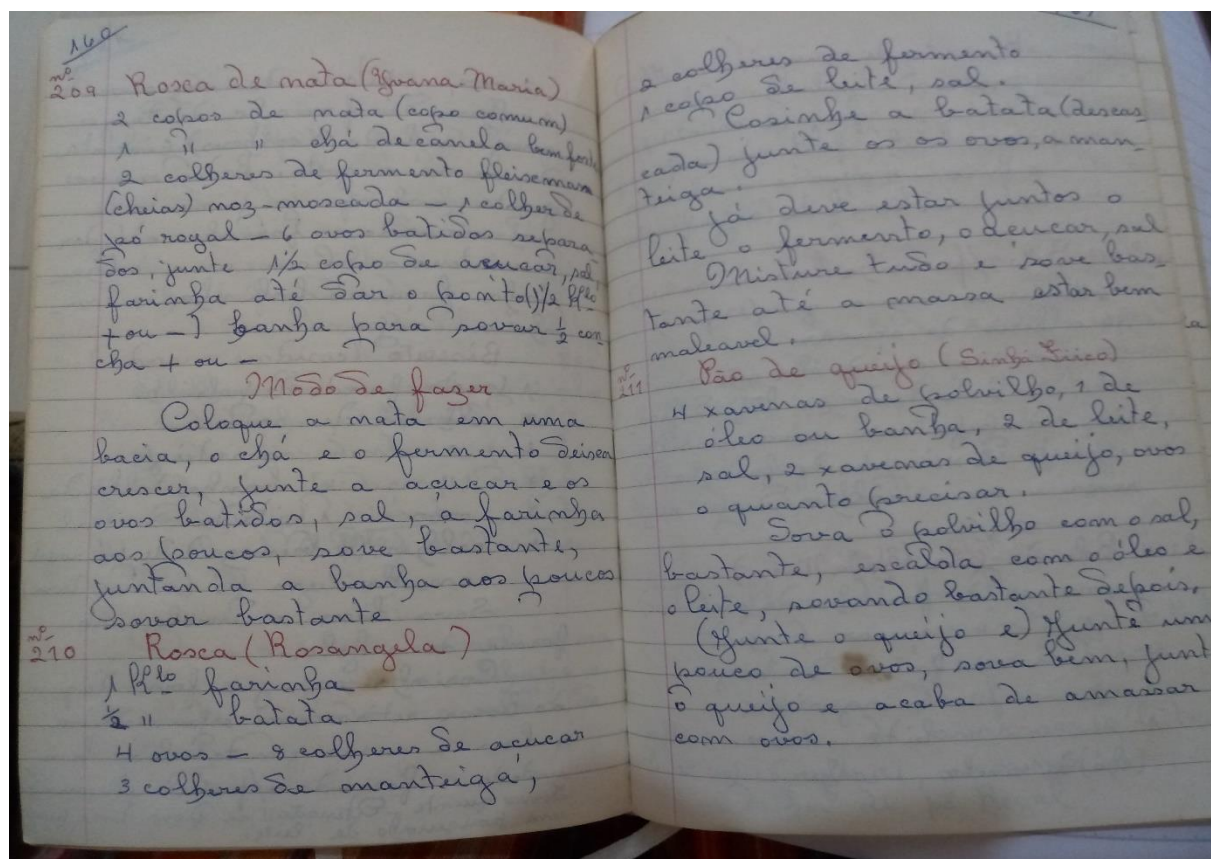 160
nº
209 Rosca de nata (Yvana Maria)
2 copos de nata (copo comum)
1 " " chá de canela bem forte
2 colheres de fermento fleiseman
(cheias) noz-moscada - 1 colher de
pó royal - 6 ovos batidos separa
dos, junte 1/2 copo de açucar, sal,
farinha até dar o ponto (1 1/2 Kilo
+ ou -) banha para sovar 1/2 con
cha + ou -
Modo de fazer
Coloque a nata em uma
bacia, o chá e o fermento deixa
crescer, junte a açucar e os
ovos batidos, sal, a farinha
aos poucos, sove bastante,
juntanda a banha aos poucos
sovar bastante
nº
210 Rosca (Rosangela)
1 Kilo farinha
1/2 " batata
4 ovos - 8 colheres de açucar
3 colheres de manteiga,
2 colheres de fermento
1 copo de leite, sal.
Cosinhe a batata (descas
cada) junte os os ovos, a man-
teiga.
Já deve estar juntos o
leite o fermento, o açucar, sal
Misture tudo e sove bas-
tante até a massa estar bem
maleavel.
nº
211 Pão de queijo (Sinhá)
4 xavenas de polvilho, 1 de
óleo ou banha, 2 de leite,
sal, 2 xavenas de queijo, ovos
o quanto precisar.
Sova o polvilho com o sal,
bastante, escalda com o óleo e
o leite, sovando bastante depois,
(Junte o queijo e) Junte um
pouco de ovos, sova bem, junt
o queijo e acaba de amassar
com ovos.